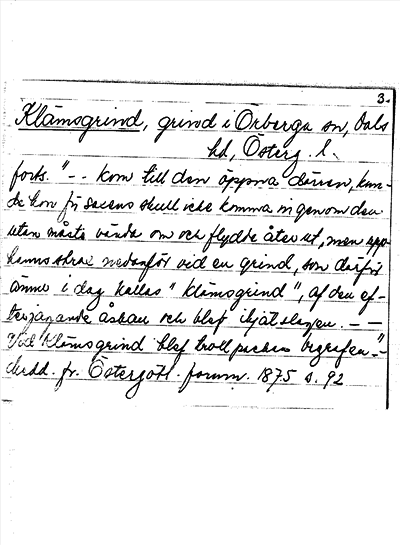 3.
Klämsgrind, grind i Örberga sn, Dals
hd, Österg. l.
forts. "-- kom till den öppna dörren, kun-
de hon för saxens skull icke komma in genom den
utan måste vända om och flydde åter ut, men upp-
hanns strax nedanför vid en grind, som därför
ännu i dag kallas "Klämsgrind", af den ef-
terjagande åskan och blef ihjälslagen. --
Vid Klämsgrind blef trollpackan begrafven".-
Medd. fr. Östergötl. fornm. 1875 s. 92